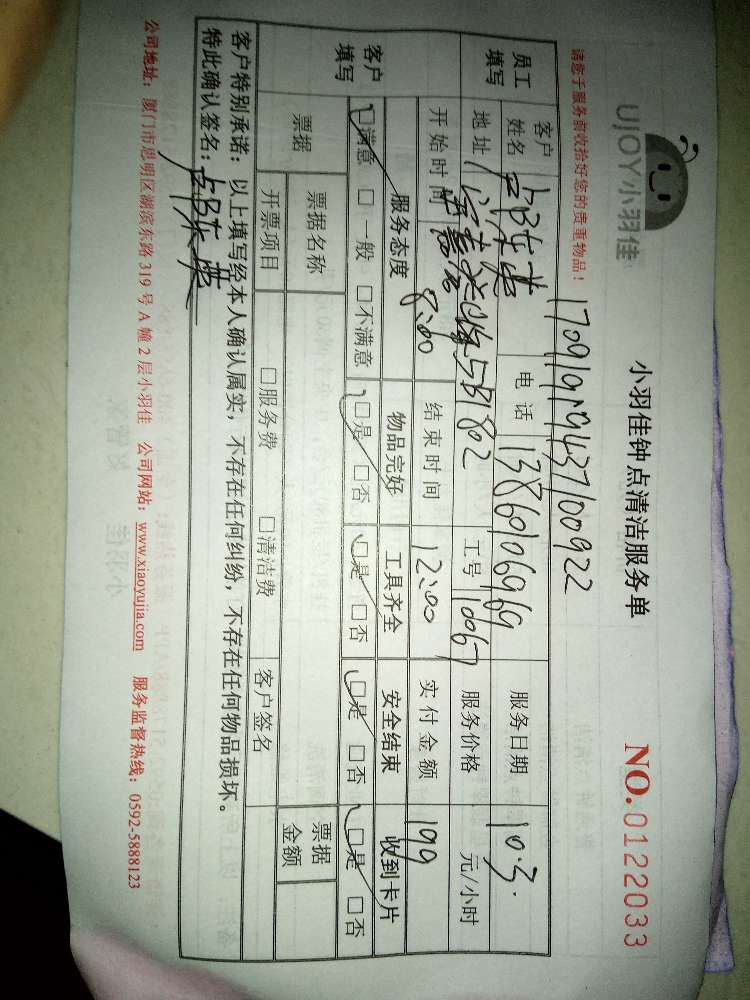 UJOY小羽佳
小羽佳钟点清洁服务单
NO.0122033
请您于服务前收拾好您的贵重物品!
17091919437100922
员工填写
客户姓名
电话 13860106969
服务日期 10.3.
地址 5B1802
工号 10067
服务价格 元/小时
开始时间 8:00
结束时间 12:00
实付金额 199
客户填写
服务态度 物品完好 工具齐全 安全结束 收到卡片
□满意 □一般 □不满意 □是 □否 □是 □否 □是 □否 □是 □否
票据
票据名称
票据金额
开票项目 □服务费 □清洁费
客户签名
客户特别承诺:以上填写经本人确认属实,不存在任何纠纷,不存在任何物品损坏。
特此确认签名:
公司地址:厦门市思明区湖滨东路 319 号 A 幢 2 层小羽佳 公司网站:www.xiaoyujia.com 服务监督热线:0592-5888123